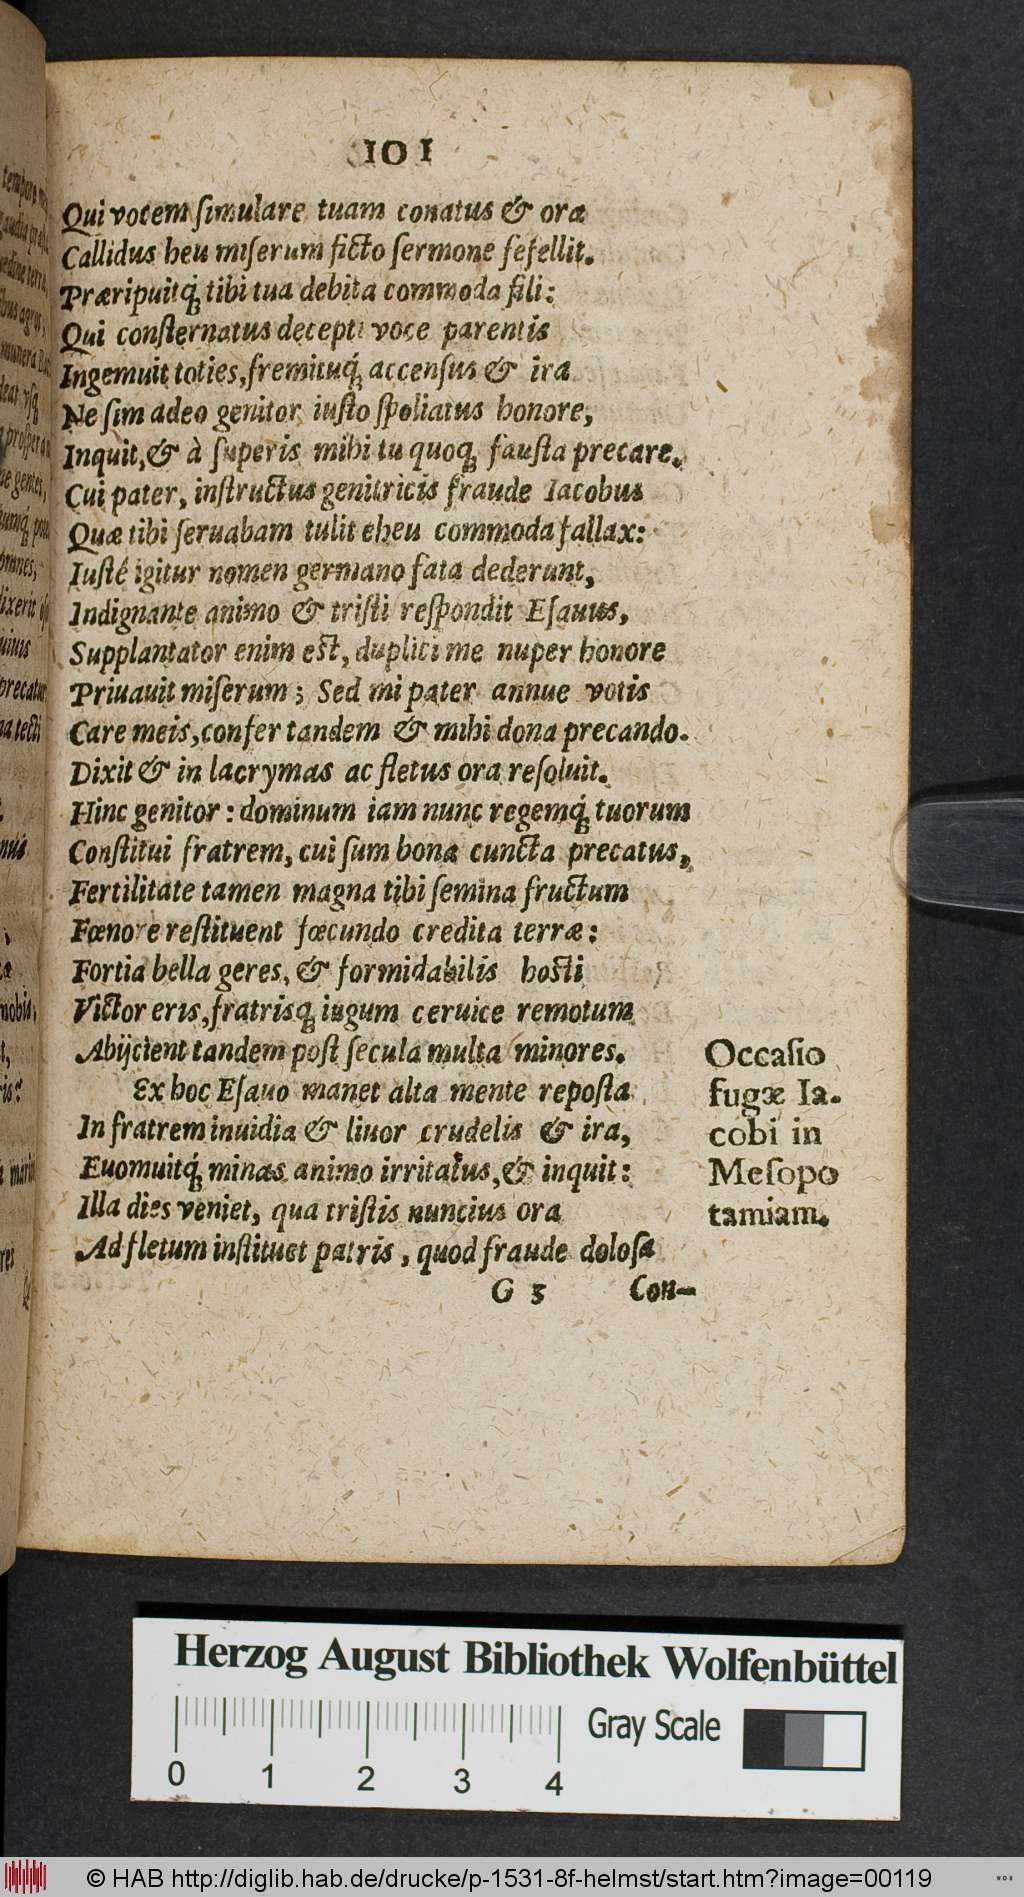 101
Qui vocem ſimulare tuam conatus & ora
Callidus heu miſerum ficto ſermone fefellit.
Præripuitq́; tibi tua debita commoda fili:
Qui conſternatus decepti voce parentis
Ingemuit toties, fremituq́; accenſus & ira
Ne ſim adeo genitor iuſto ſpoliatus honore,
Inquit, & à ſuperis mihi tu quoq; fauſta precare.
Cui pater, inſtructus genitricis fraude Iacobus
Quæ tibi ſeruabam tulit eheu commoda fallax:
Iuſté igitur nomen germano fata dederunt,
Indignante animo & triſti reſpondit Eſauus,
Supplantator enim eſt, duplici me nuper honore
Priuauit miſerum; Sed mi pater annue votis
Care meis, confer tandem & mihi dona precando.
Dixit & in lacrymas ac fletus ora reſoluit.
Hinc genitor: dominum iam nunc regemq́; tuorum
Conſtitui fratrem, cui ſum bona cuncta precatus,
Fertilitate tamen magna tibi ſemina fructum
Fœnore reſtituent fœcundo credita terræ:
Fortia bella geres, & formidabilis hoſti
Victor eris, fratrisq; iugum ceruice remotum
Abijcient tandem poſt ſecula multa minores.
Ex hoc Eſauo manet alta mente repoſta
In fratrem inuidia & liuor crudelis & ira,
Euomuitq́; minas animo irritatus, & inquit:
Illa dies veniet, qua triſtis nuncius ora
Ad fletum inſtituet patris, quod fraude doloſa
G 3 Con-
Occaſio
fugæ Ia-
cobi in
Meſopo
tamiam.
Herzog August Bibliothek Wolfenbüttel
Gray Scale
0 1 2 3 4
© HAB http://diglib.hab.de/drucke/p-1531-8f-helmst/start.htm?image=00119